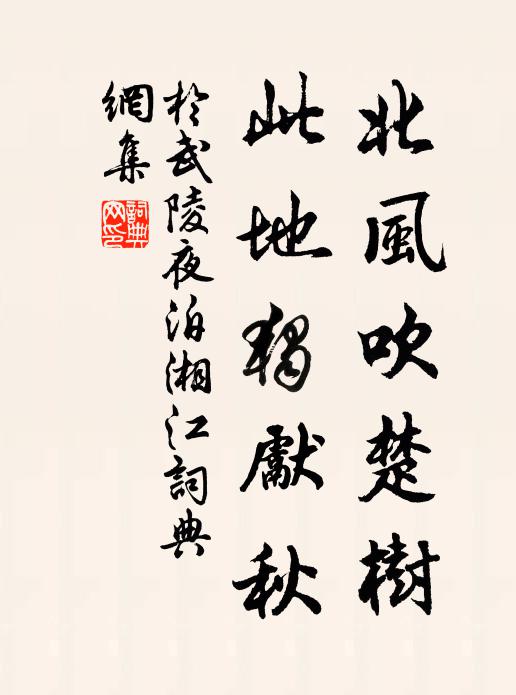 北風吹楚樹
此地獨獻秋
於武陵夜泊湘江詞典
網集
詞典
网印